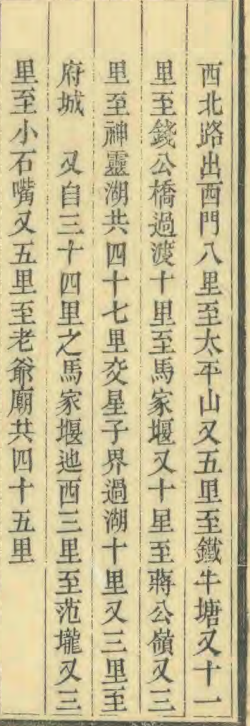 西北路出西門八里至太平山又五里至鐵牛塘又十一
里至錢公橋過渡十里至馬家堰又十星至蔣公嶺又三
里至神靈湖共四十七里交星子界過湖十里又三里至
府城　又自三十四里之馬家堰迆西三里至范壠又三
里至小石嘴又五里至老爺廟共四十五里